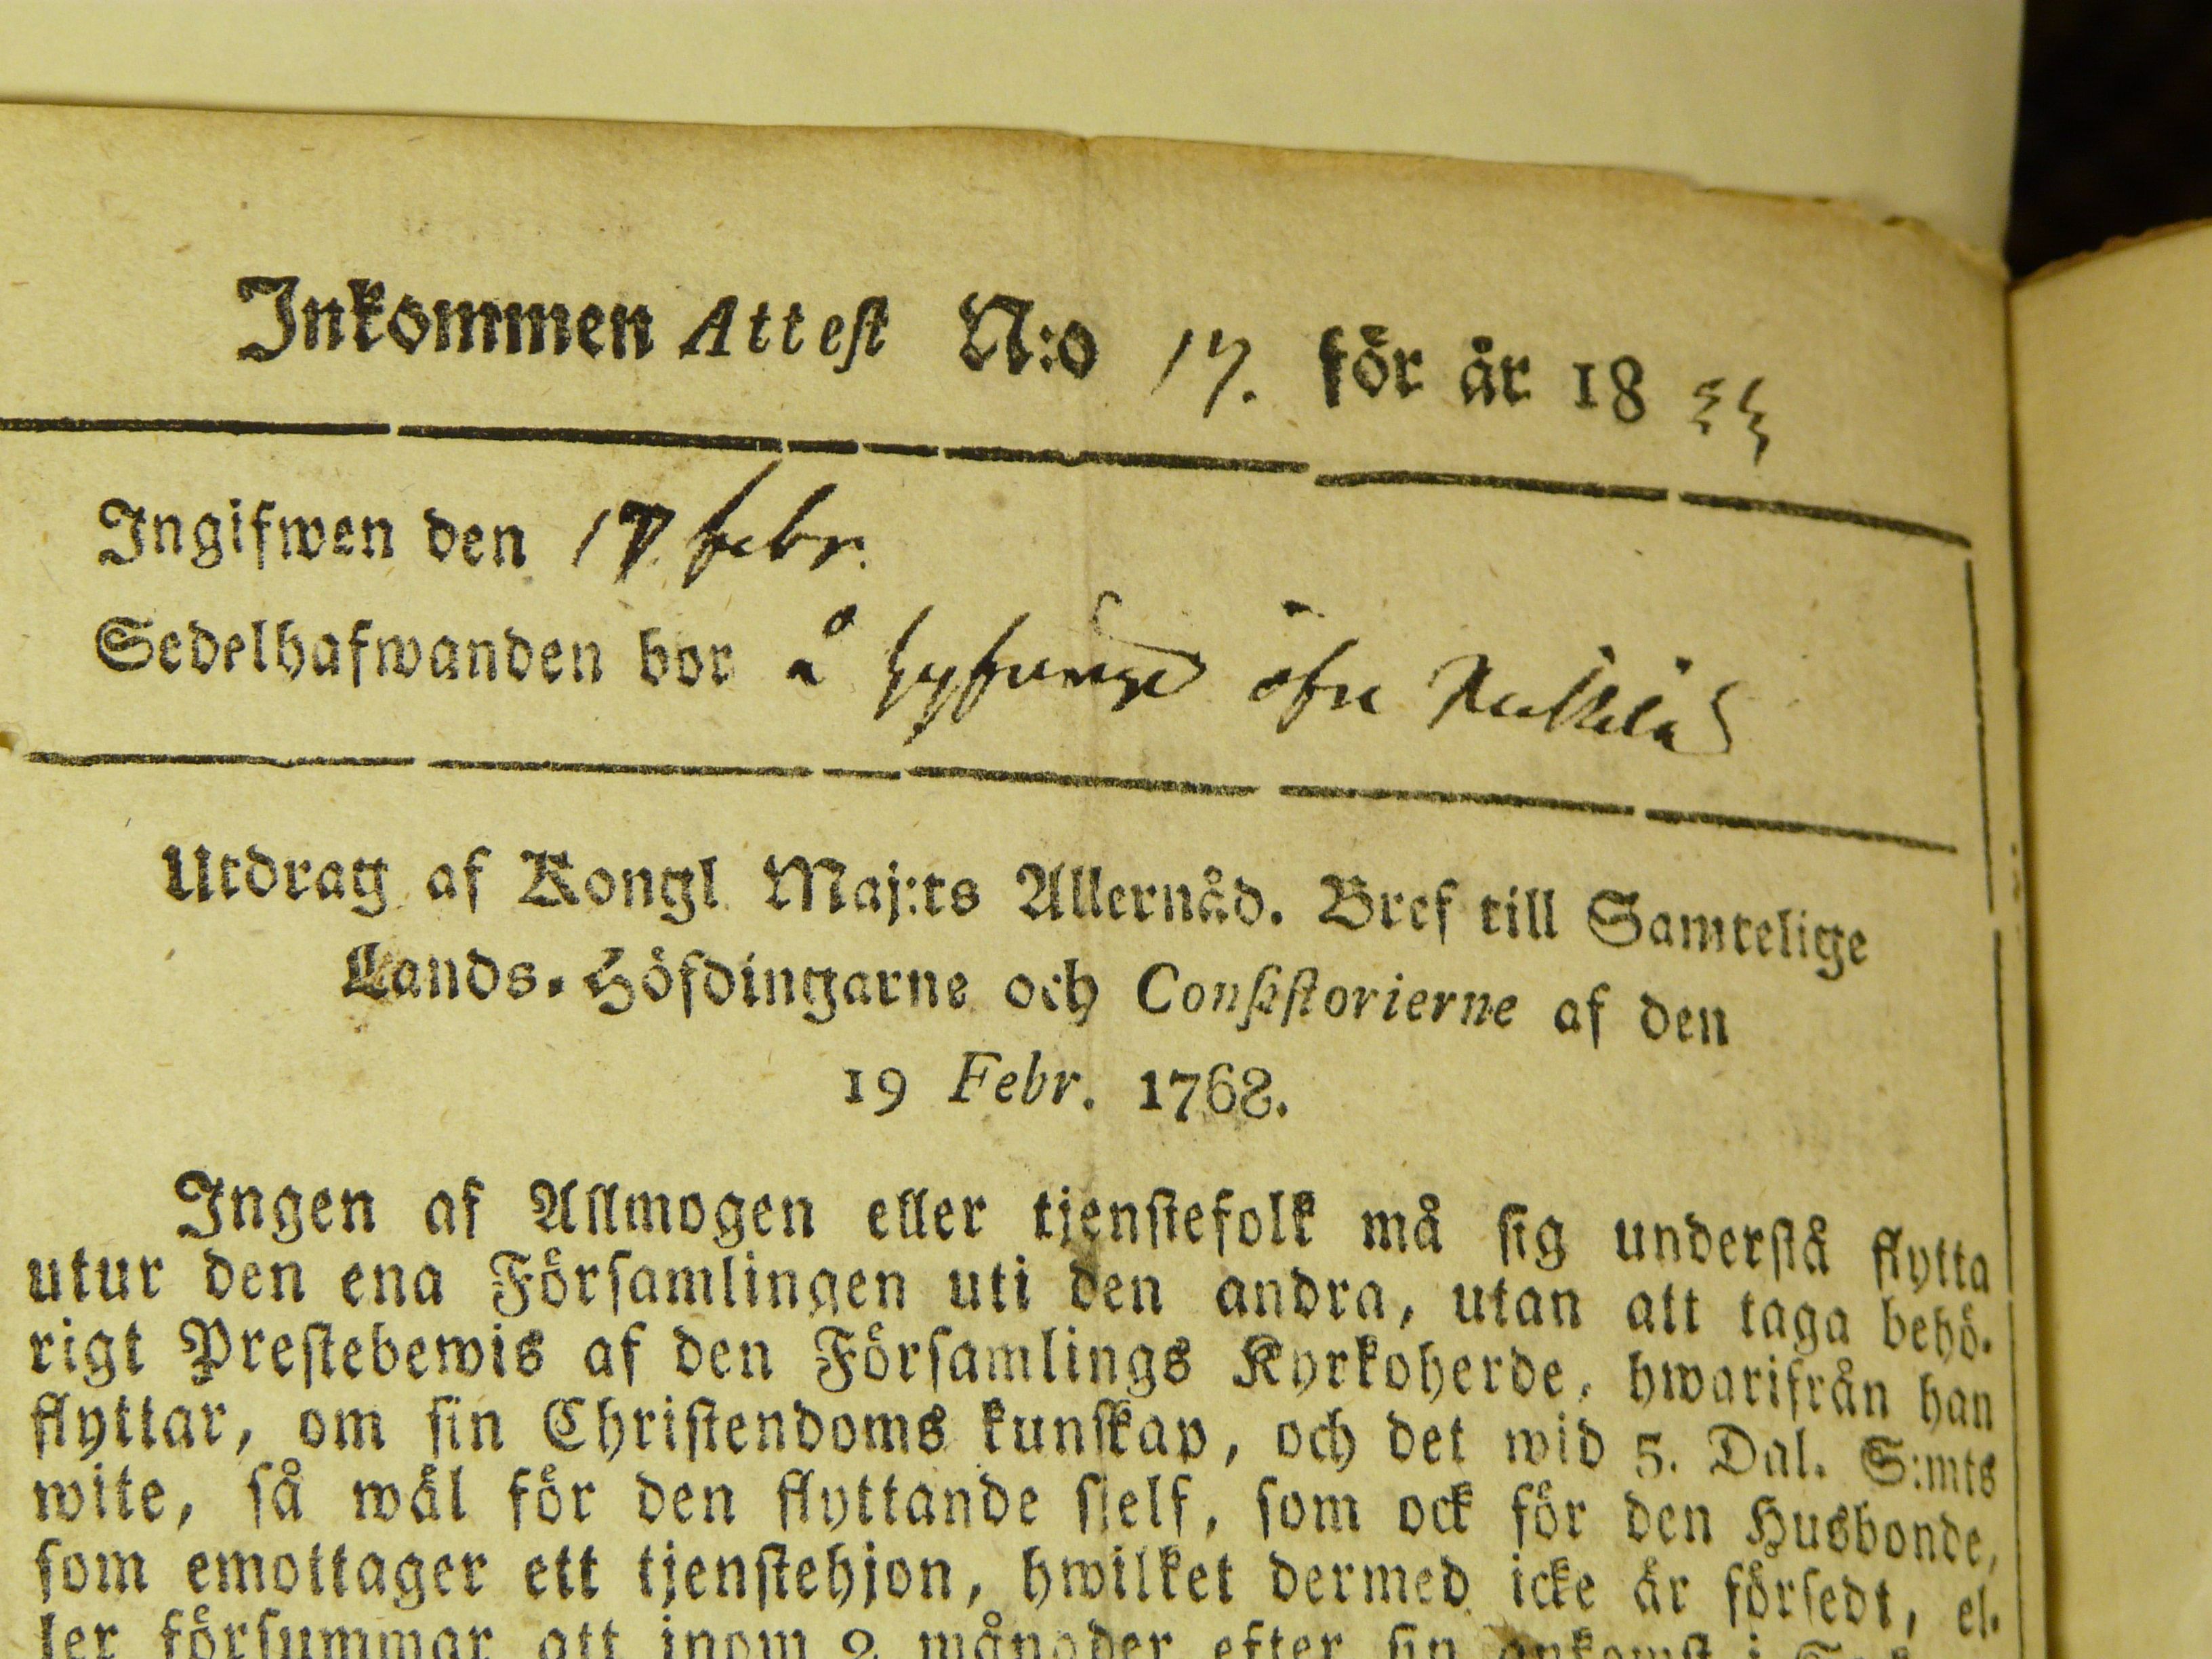 Inkommen Attest N:o 17. för år 1833
Ingifwen den 17 febr.
Sedelhafwanden bor å öfre
Utdrag af Kongl Maj:ts Allernåd. Bref till Samtelige
Lands-Höfdingarne och Consistorierne af den
19 Febr. 1768.
Ingen af Allmogen eller tjenstefolk må sig understå flytta
utur den ena Församlingen uti den andra, utan att taga behö-
rigt Prestebewis af den Församlings Kyrkoherde, hwarifrån han
flyttar, om sin Christendoms kunskap, och det wid 5. Dal. S:mts
wite, så wäl för den flyttande sjelf, som ock för den Husbonde,
som emottager ett tjenstehjon, hwilket dermed icke är försedt, el-
ler försummar att inom 2 månader efter sin ankomst i